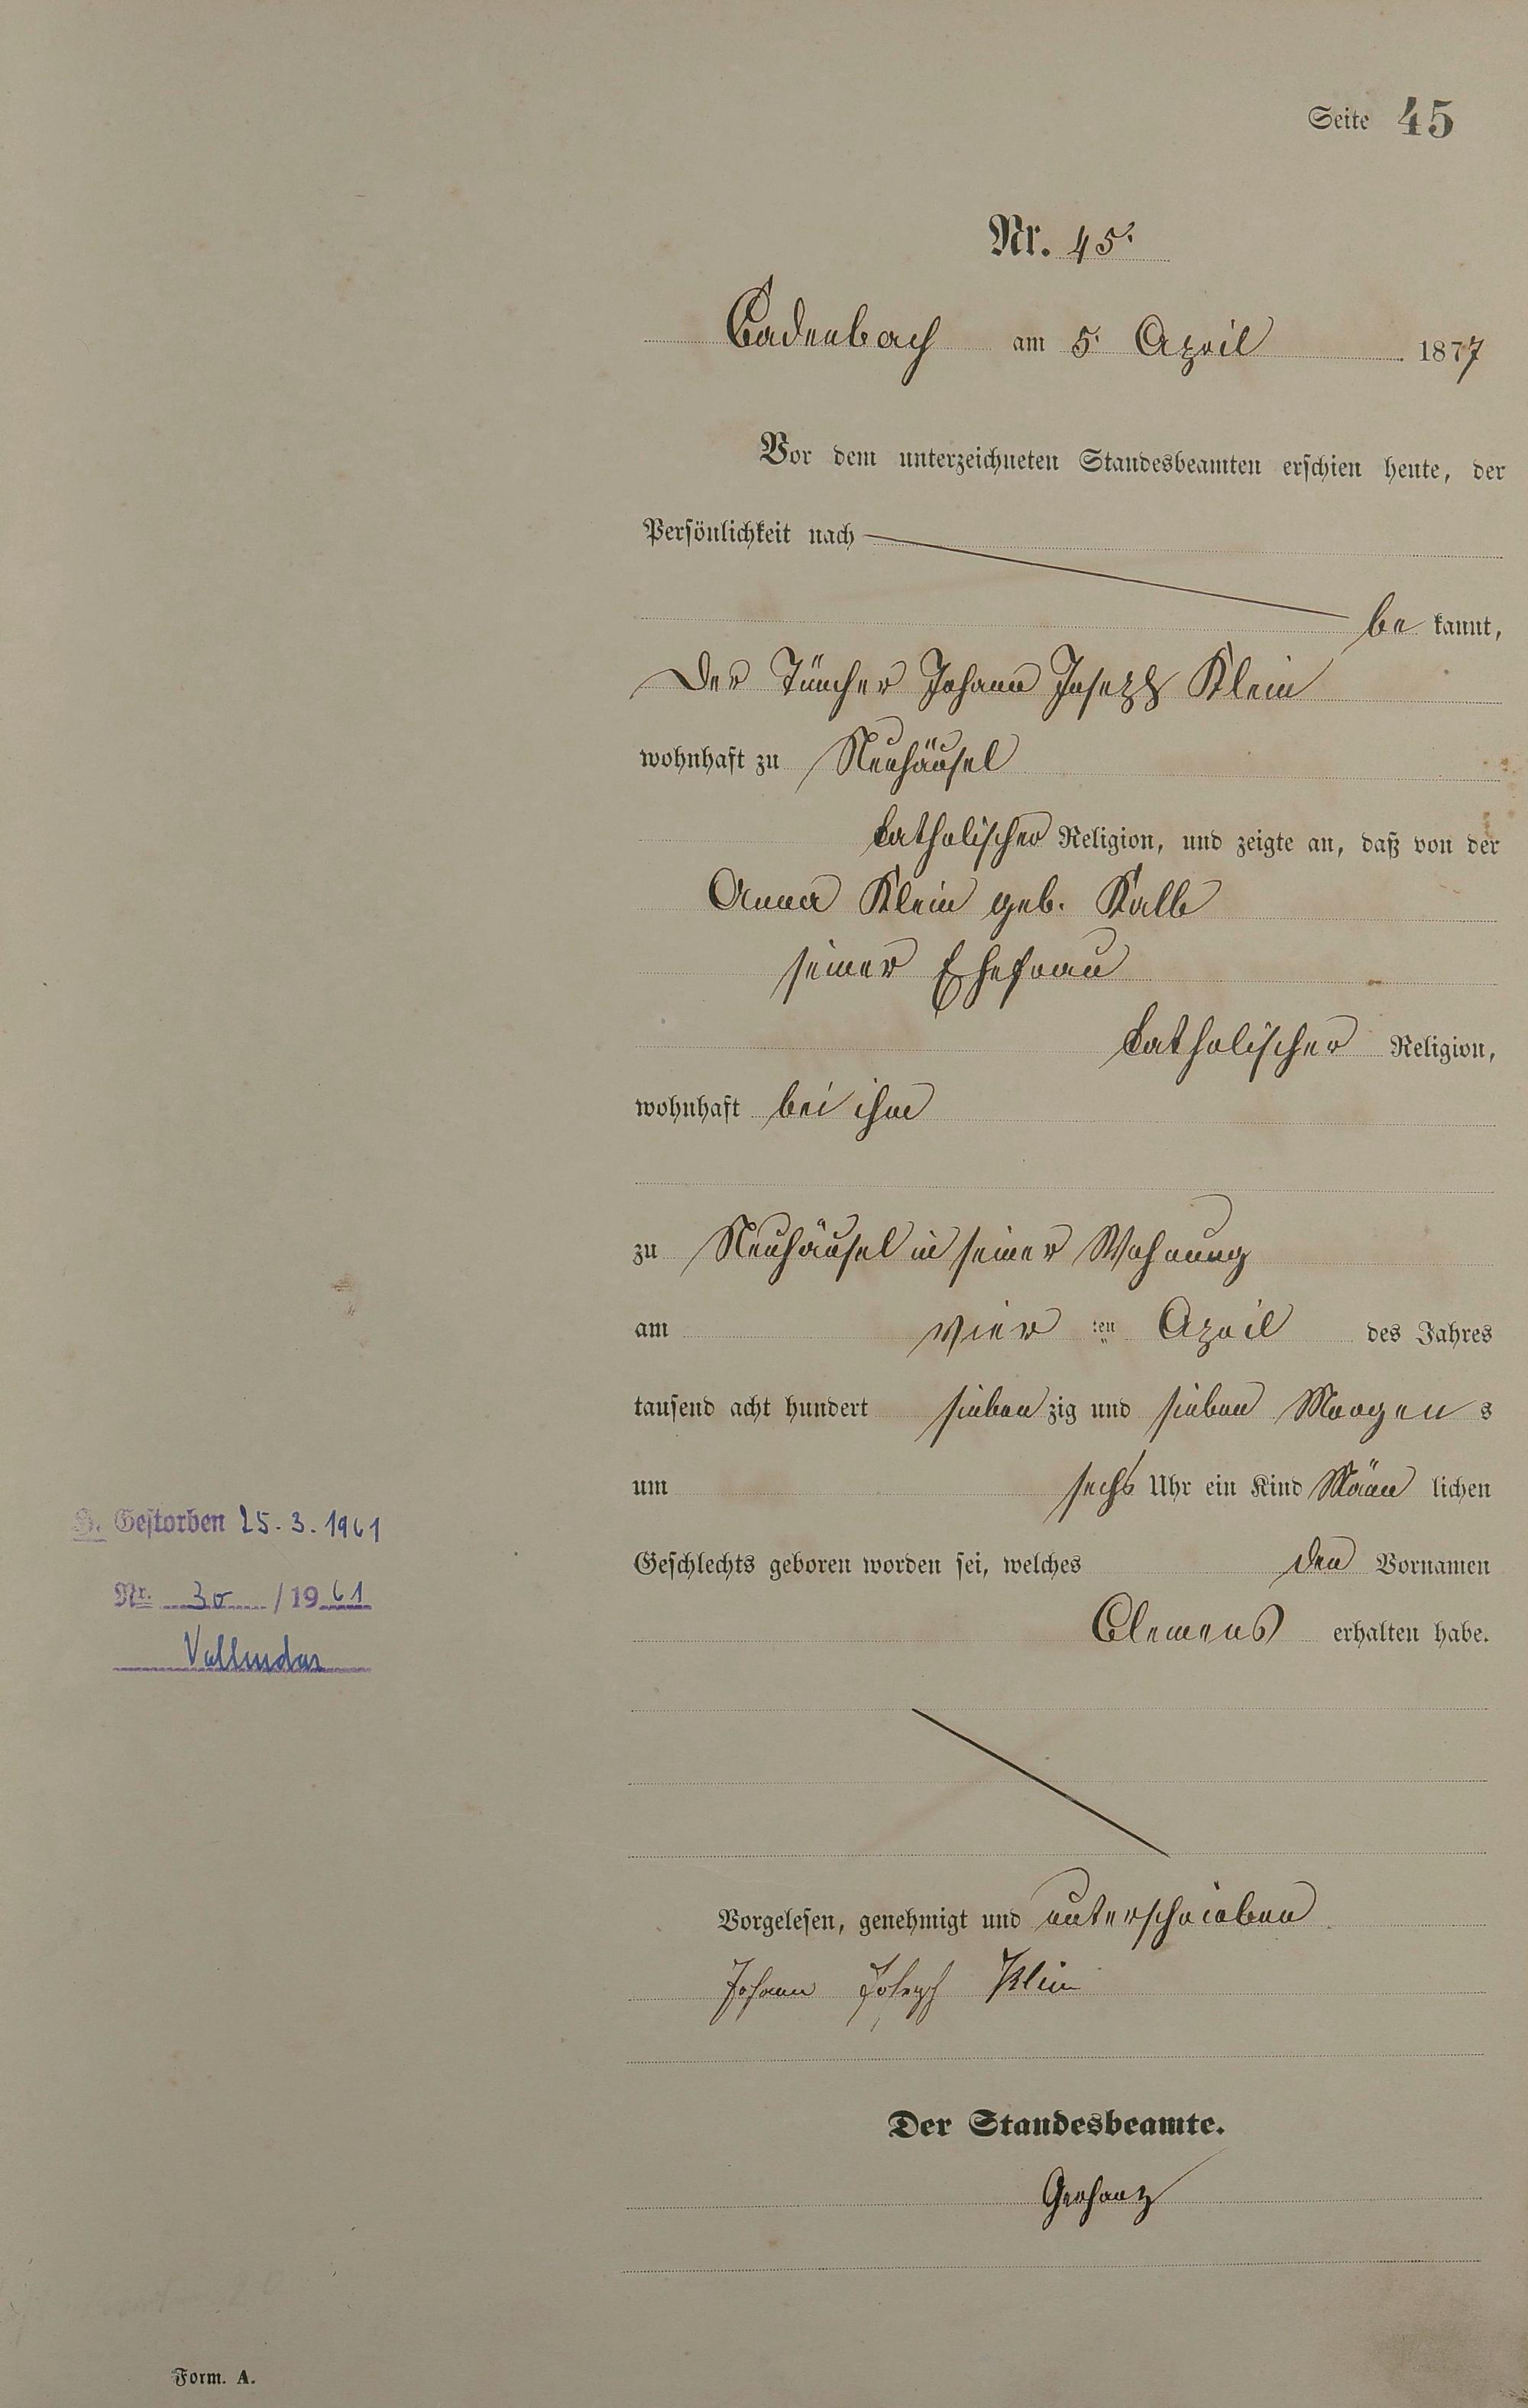 Seite 45
Nr. 45.
Cadenbach am 5. April 1877
Vor dem unterzeichneten Standesbeamten erschien heute, der
Persönlichkeit nach
be kannt,
Der Tüncher Johann Joseph Klein
wohnhaft zu Neuhäusel
katholischer Religion, und zeigte an, daß von der
Anna Klein geb. Kalb
seiner Ehefrau
katholischer Religion,
wohnhaft bei ihm
zu Neuhäusel in seiner Wohnung
am vier ten April des Jahres
tausend acht hundert sieben zig und sieben Morgen s
um sechs Uhr ein Kind Männ lichen
Geschlechts geboren worden sei, welches den Vornamen
Clemens erhalten habe.
Vorgelesen, genehmigt und unterschrieben
Johann Joseph Klein
Der Standesbeamte.
Gerharz
H. Gestorben 25.3.1961
Nr. 30 / 1961
Vallendar
Form. A.